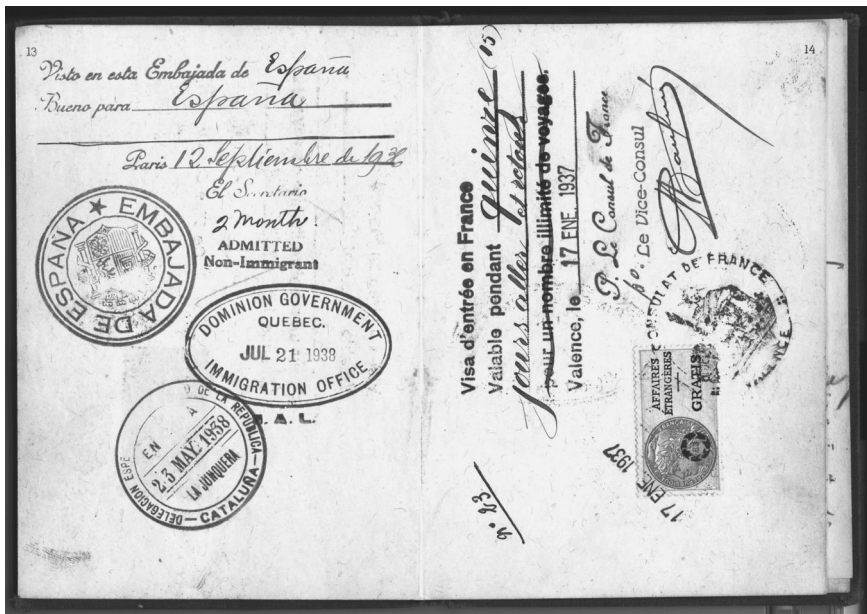 13
Visto en esta Embajada de España
Bueno para España
Paris 12 Septiembre de 1936
El Secretario
2 month
ADMITTED
Non-Immigrant
EMBAJADA DE ESPAÑA
DOMINION GOVERNMENT
QUEBEC.
JUL 21 1938
IMMIGRATION OFFICE
A. L.
DE LA REPUBLICA
EN
23 MAY. 1938
LA JUNQUERA
DELEGACION ESPE
CATALUÑA
14
Visa d'entrée en France
Valable pendant quinze (15)
jours aller et retour
pour un nombre illimité de voyages.
Valence, le 17 ENE. 1937
P. Le Consul de France
po. Le Vice-Consul
CONSULAT DE FRANCE
VALENCE
AFFAIRES
ÉTRANGÈRES
GRATIS
17 ENE 1937
n° 23